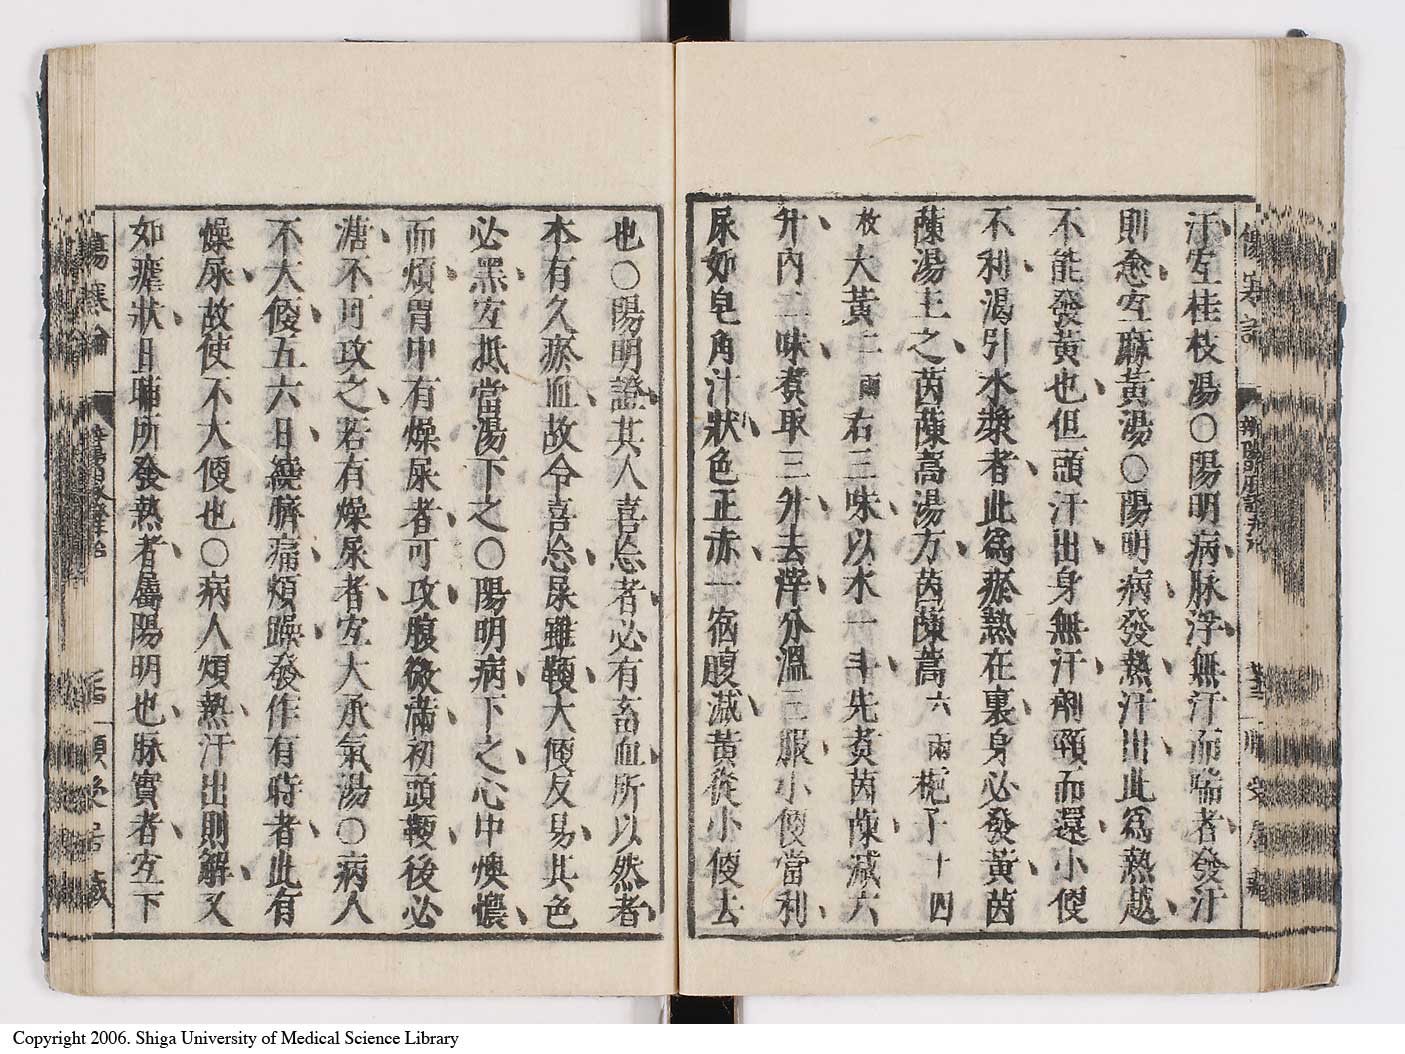 汗宜桂枝湯○陽明病脉浮無汗而喘者發汗
則愈宜麻黃湯○陽明病發熱汗出此爲熱越
不能發黃也但頭汗出身無汗劑頸而還小便
不利渴引水漿者此爲瘀熱在裏身必發黃茵
蔯湯主之茵蔯蒿湯方茵蔯蒿六兩梔子十四
枚大黃二兩右三味以水一斗先煮茵蔯減六
升內二味煮取三升去滓分溫三服小便當利
尿如皂角汁狀色正赤一宿腹減黃從小便去
也○陽明證其人喜忘者必有畜血所以然者
本有久瘀血故令喜忘屎雖鞕大便反易其色
必黑宜抵當湯下之○陽明病下之心中懊憹
而煩胃中有燥屎者可攻腹微滿初頭鞕後必
溏不可攻之若有燥屎者宜大承氣湯○病人
不大便五六日繞臍痛煩躁發作有時者此有
燥屎故使不大便也○病人煩熱汗出則解又
如瘧狀日晡所發熱者屬陽明也脉實者宜下
傷寒論
Copyright 2006. Shiga University of Medical Science Library